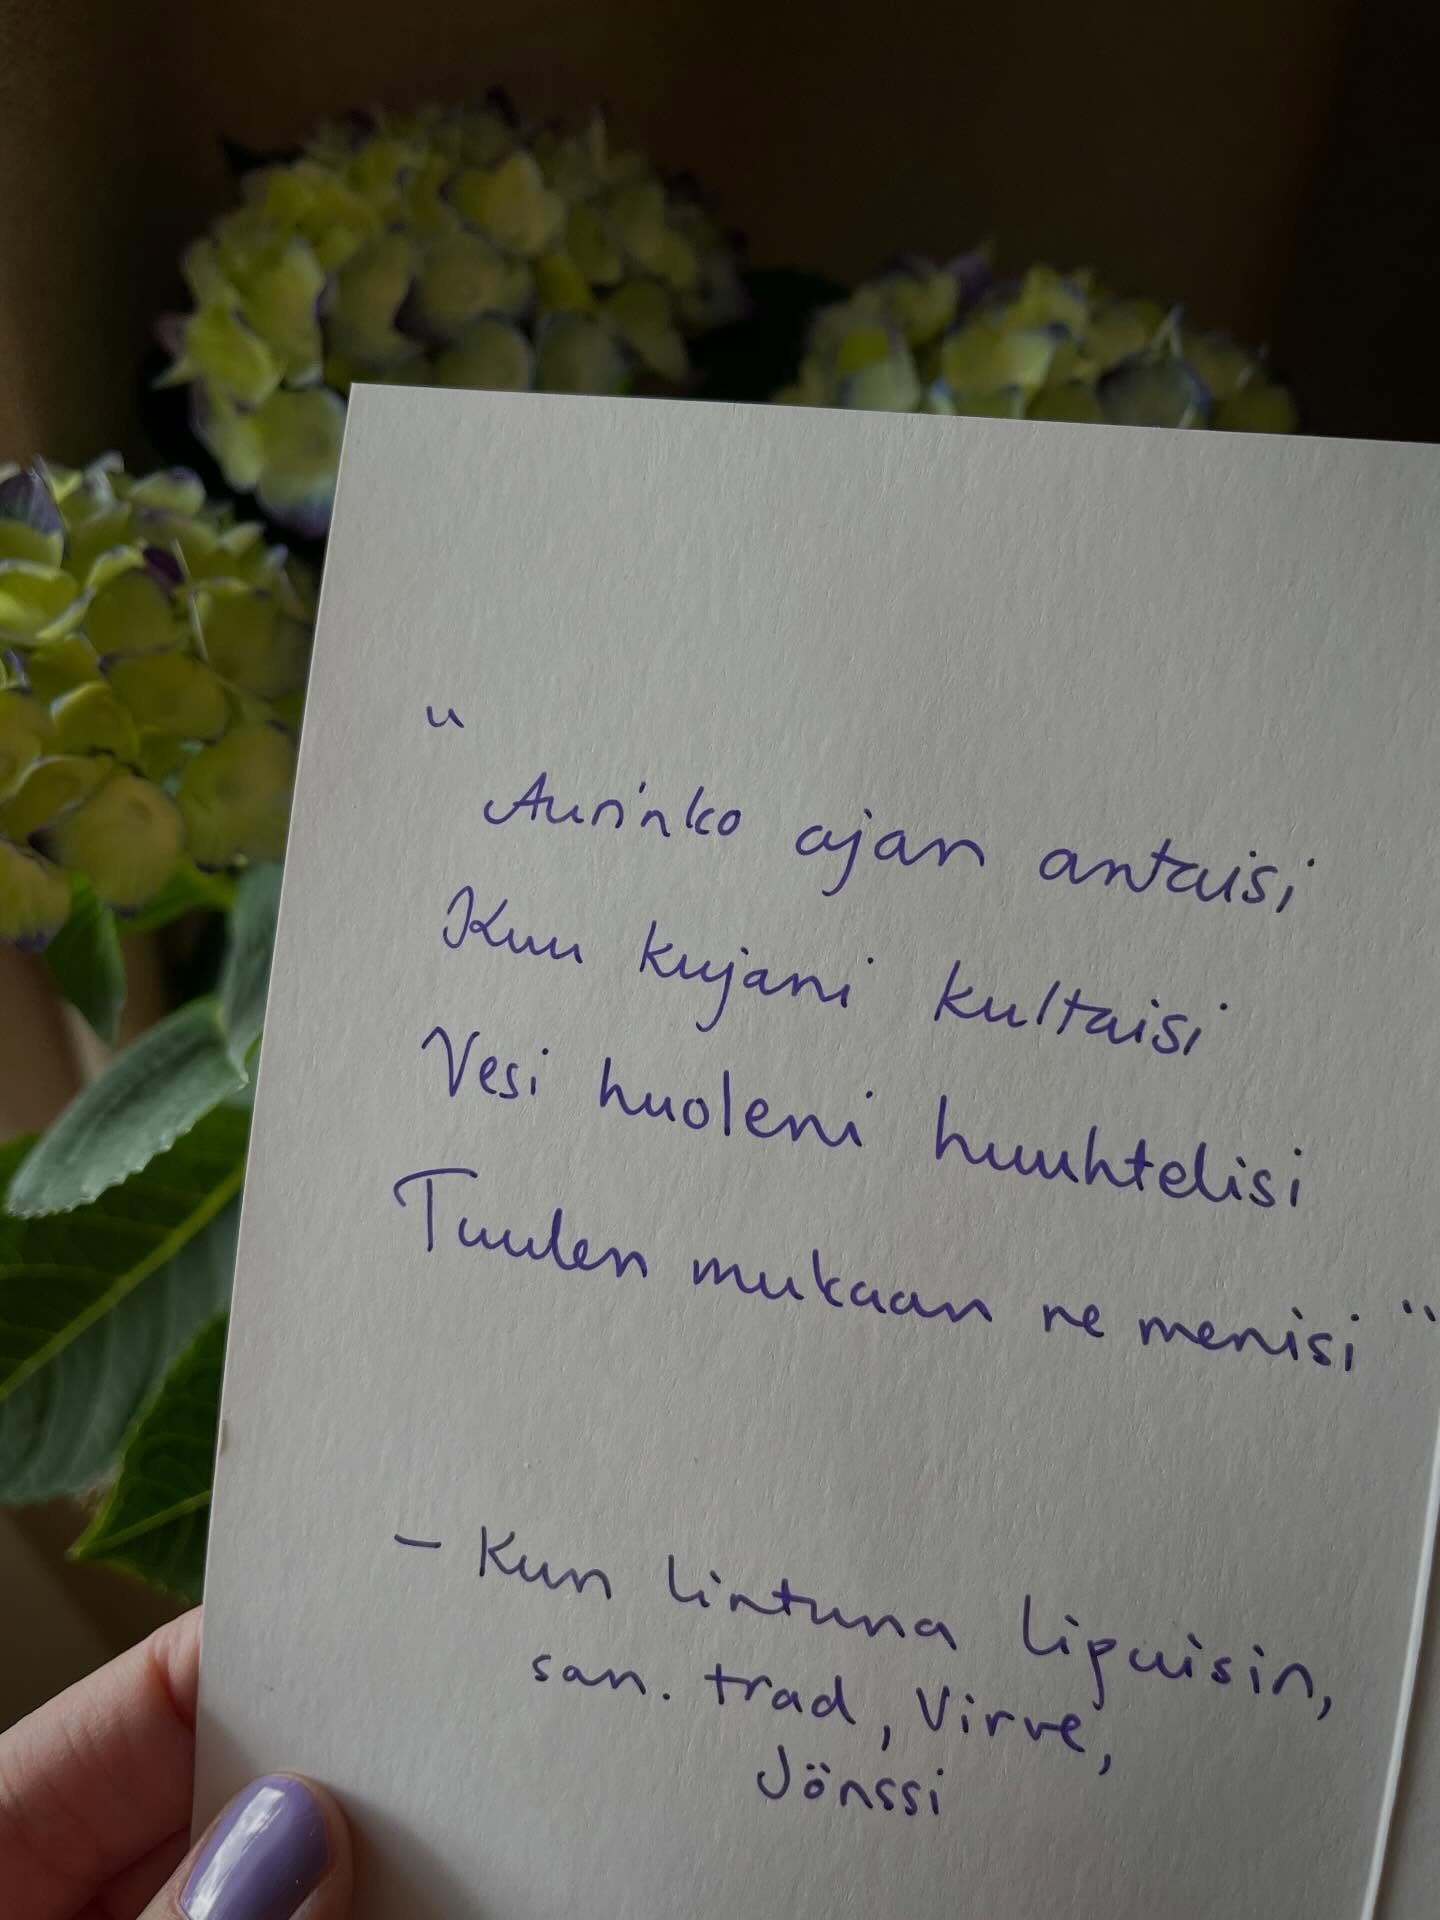 "
Aurinko ajan antaisi
Kuu kujani kultaisi
Vesi huoleni huuhtelisi
Tuulen mukaan ne menisi"
- Kun lintuna lipuisin,
san. trad, Virve,
Jönssi